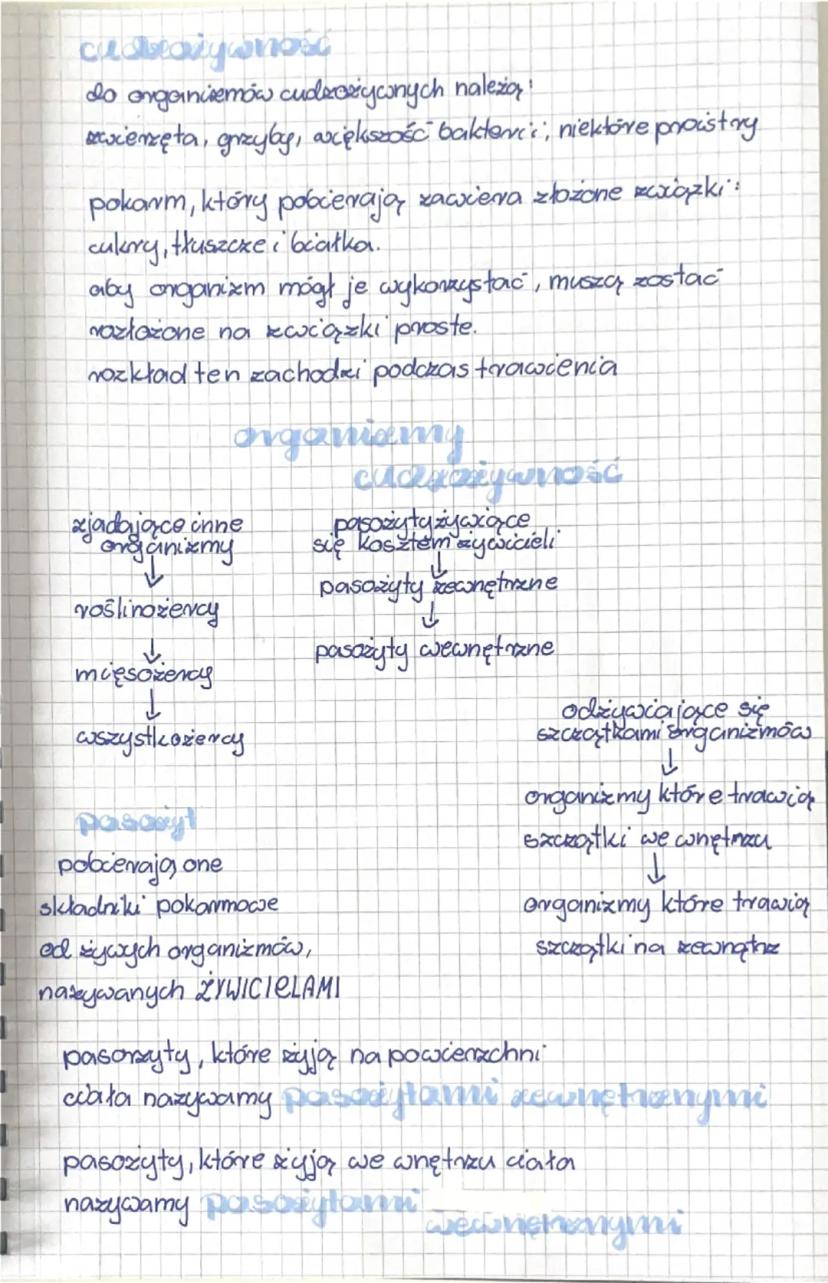 cudzożywność
do organizmów cudzożywnych należą:
zwierzęta, grzyby, większość bakterii, niektóre protisty
pokarm, który pobierają zawiera złożone związki:
cukry, tłuszcze i białka.
aby organizm mógł je wykorzystać, muszą zostać
rozłożone na związki proste.
rozkład ten zachodzi podczas trawienia
organizmy
cudzożywność
zjadające inne
organizmy
↓
roślinożercy
↓
mięsożercy
↓
wszystkożercy
pasożyty żywiące
się kosztem żywicieli
↓
pasożyty zewnętrzne
↓
pasożyty wewnętrzne
odżywiające się
szczątkami organizmów
↓
organizmy które trawią
szczątki we wnętrzu
↓
organizmy które trawią
szczątki na zewnątrz
pasożyt
pobierają one
składniki pokarmowe
od żywych organizmów,
nazywanych ŻYWICIELAMI
pasorzyty, które żyją na powierzchni
ciała nazywamy pasożytami zewnętrznymi
pasożyty, które żyją we wnętrzu ciała
nazywamy pasożytami
wewnętrznymi